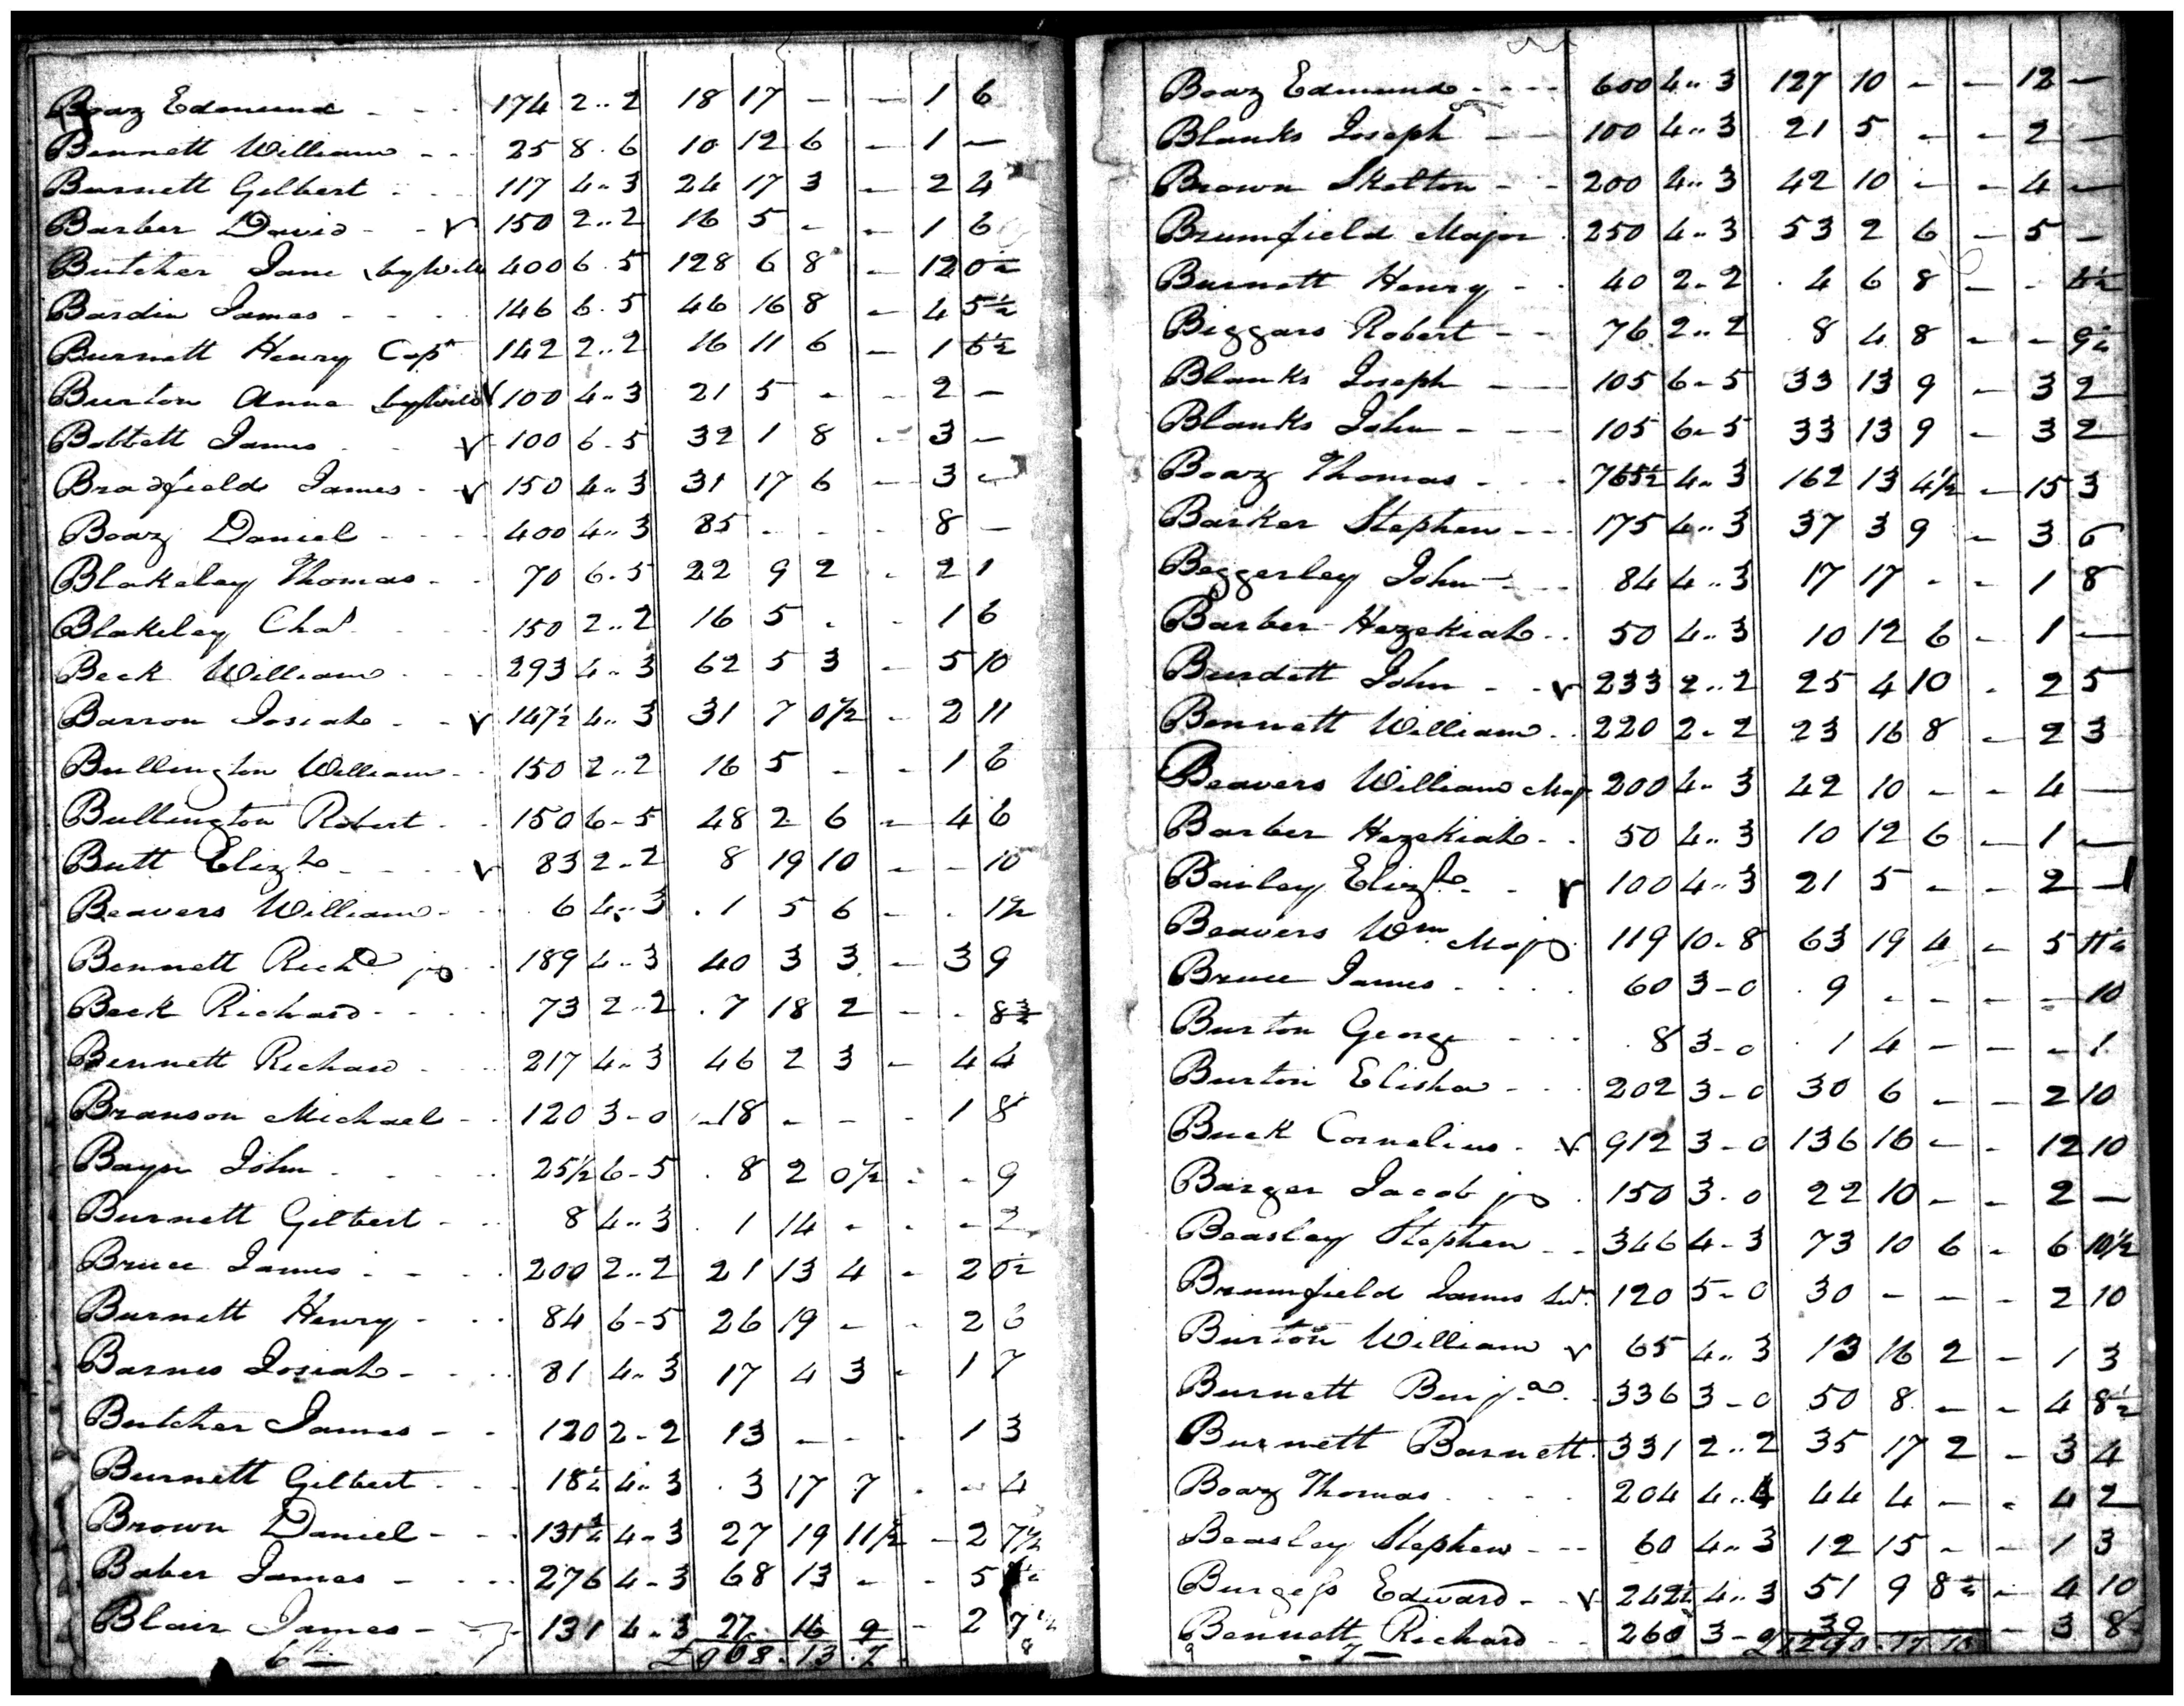 Boaz Edmund - - - 174 2..2 18 17 - - 1 6
Bennett William - - 25 8.6 10 12 6 - 1 -
Burnett Gilbert - - 117 4..3 24 17 3 - 2 4
Barber David - - v 150 2..2 16 5 - - 1 6
Butcher Jane by Wills 400 6.5 128 6 8 - 12 0¼
Bardin James - - - 146 6.5 46 16 8 - 4 5½
Burnett Henry Capt 142 2..2 16 11 6 - 1 6½
Burton Anna by Wills v 100 4..3 21 5 - - 2 -
Bobbett James - - v 100 6.5 32 1 8 - 3 -
Bradfield James - v 150 4..3 31 17 6 - 3 -
Boaz Daniel - - - 400 4..3 85 - - - 8 -
Blakeley Thomas - - 70 6.5 22 9 2 - 2 1
Blakeley Chas - - - 150 2..2 16 5 - - 1 6
Beck William - - - 293 4..3 62 5 3 - 5 10
Barron Josiah - - v 147½ 4..3 31 7 0½ - 2 11
Bullington William - - 150 2..2 16 5 - - 1 6
Bullington Robert - - 150 6-5 48 2 6 - 4 6
Butt Elizth - - - v 83 2-2 8 19 10 - - 10
Beavers William - - 6 4..3 1 5 6 - - 1½
Bennett Richd jr - 189 4..3 40 3 3 - 3 9
Beck Richard - - - 73 2..2 7 18 2 - - 8¾
Bennett Richard - - 217 4..3 46 2 3 - 4 4
Branson Michael - - 120 3-0 18 - - - 1 8
Bayn John - - - 25½ 6-5 8 2 0½ - - 9
Burnett Gilbert - - 8 4..3 1 14 - - - 2
Bruce James - - - 200 2..2 21 13 4 - 2 0½
Burnett Henry - - - 84 6-5 26 19 - - 2 6
Barnes Josiah - - - 81 4..3 17 4 3 - 1 7
Butcher James - - 120 2-2 13 - - - 1 3
Burnett Gilbert - - 18¼ 4..3 3 17 7 - - 4
Brown Daniel - - - 131¾ 4-3 27 19 11½ - 2 7½
Baber James - - - 276 4-3 68 13 - - 5
Blair James - - 131 4-3 27 16 9 - 2 7½
6th £908.13.7 8
Boaz Edmund - - - 600 4..3 127 10 - - 12 -
Blanks Joseph - - 100 4..3 21 5 - - 2 -
Brown Skelton - - 200 4..3 42 10 - - 4 -
Brumfield Major - 250 4..3 53 2 6 - 5 -
Burnett Henry - - 40 2-2 4 6 8 - - 4½
Biggars Robert - - 76 2..2 8 4 8 - - 9¼
Blanks Joseph - - 105 6-5 33 13 9 - 3 2
Blanks John - - 105 6-5 33 13 9 - 3 2
Boaz Thomas - - - 765½ 4..3 162 13 4½ - 15 3
Barker Stephen - - - 175 4..3 37 3 9 - 3 6
Beggerley John - - 84 4..3 17 17 - - 1 8
Barber Hezekiah - - 50 4..3 10 12 6 - 1 -
Burdett John - - v 233 2..2 25 4 10 - 2 5
Bennett William - - 220 2-2 23 16 8 - 2 3
Beavers William Majr 200 4..3 42 10 - - 4 -
Barber Hezekiah - - 50 4..3 10 12 6 - 1 -
Bailey Elizth - - v 100 4..3 21 5 - - 2 -
Beavers Wm Majr 119 10-8 63 19 4 - 5 11¼
Bruce James - - - 60 3-0 9 - - - - 10
Burton George - - - 8 3-0 1 4 - - - 1
Burton Elisha - - - 202 3-0 30 6 - - 2 10
Buck Cornelius - v 912 3-0 136 16 - - 12 10
Barger Jacob jr - 150 3-0 22 10 - - 2 -
Beasley Stephen - - 346 4-3 73 10 6 - 6 10½
Brumfield James Senr 120 5-0 30 - - - 2 10
Burton William v 65 4..3 13 16 2 - 1 3
Burnett Benja - 336 3-0 50 8 - - 4 8½
Burnett Barnett 331 2..2 35 17 2 - 3 4
Boaz Thomas - - - 204 4..4 44 4 - - 4 2
Beasley Stephen - - - 60 4..3 12 15 - - 1 3
Burgess Edward - - v 242¼ 4..3 51 9 8¾ - 4 10
Bennett Richard - - 260 3-0 39 - 3 8
7 £1290.17.